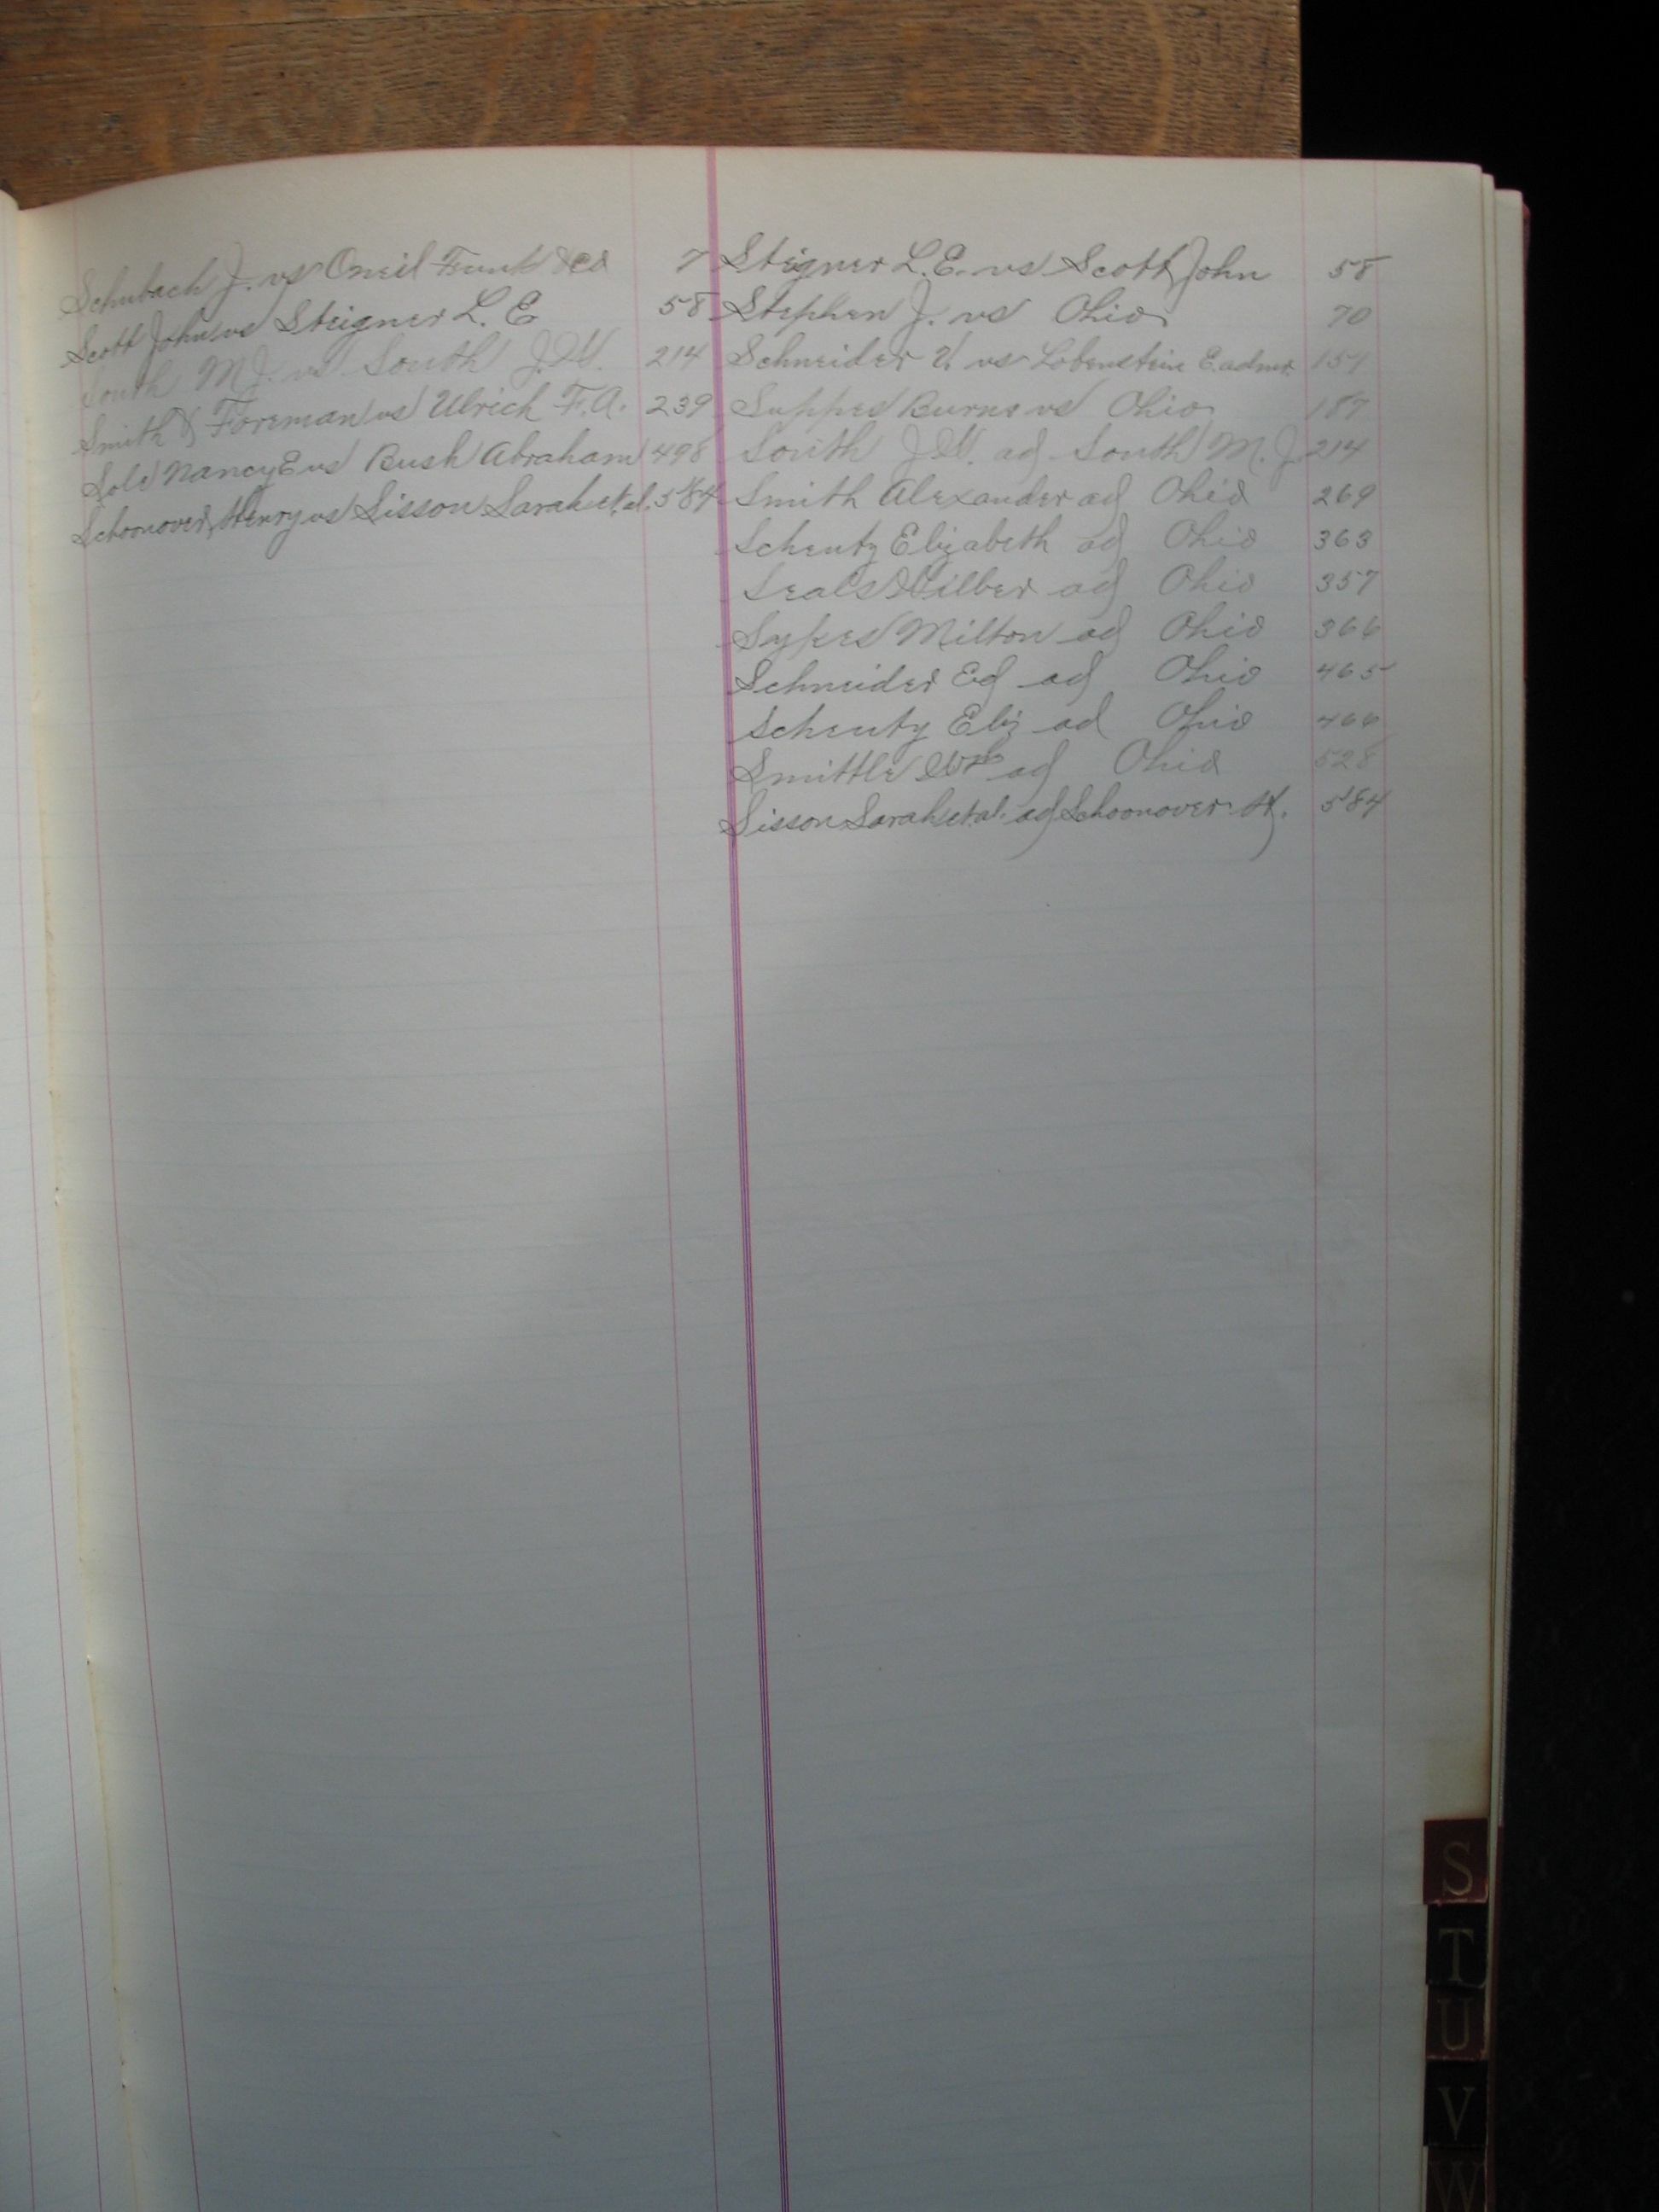 Schubach J. vs Oneil Frank &Co 7
Scott John vs Steigner L. E 58
South M J. vs South J.W. 214
Smith & Foreman vs Ulrich F. A. 239
Sole Nancy E vs Bush Abraham 498
Schoonover, Henry vs Sisson Sarah et.al. 584
Steigner L. E. vs Scott John 58
Stephen J. vs Ohio 70
Schneider U. vs Lobenstein E. admr. 151
Suppes Burns vs Ohio 187
South J W. ad South M. J. 214
Smith Alexander ad Ohio 269
Scheutz Elizabeth ad Ohio 363
Seals Wilber ad Ohio 357
Sypes Milton ad Ohio 366
Schneider Ed ad Ohio 465
Scheutz Eliz ad Ohio 466
Smittle Wm ad Ohio 528
Sisson Sarah et.al. ad Schoonover H. 584
S
T
U
V
W